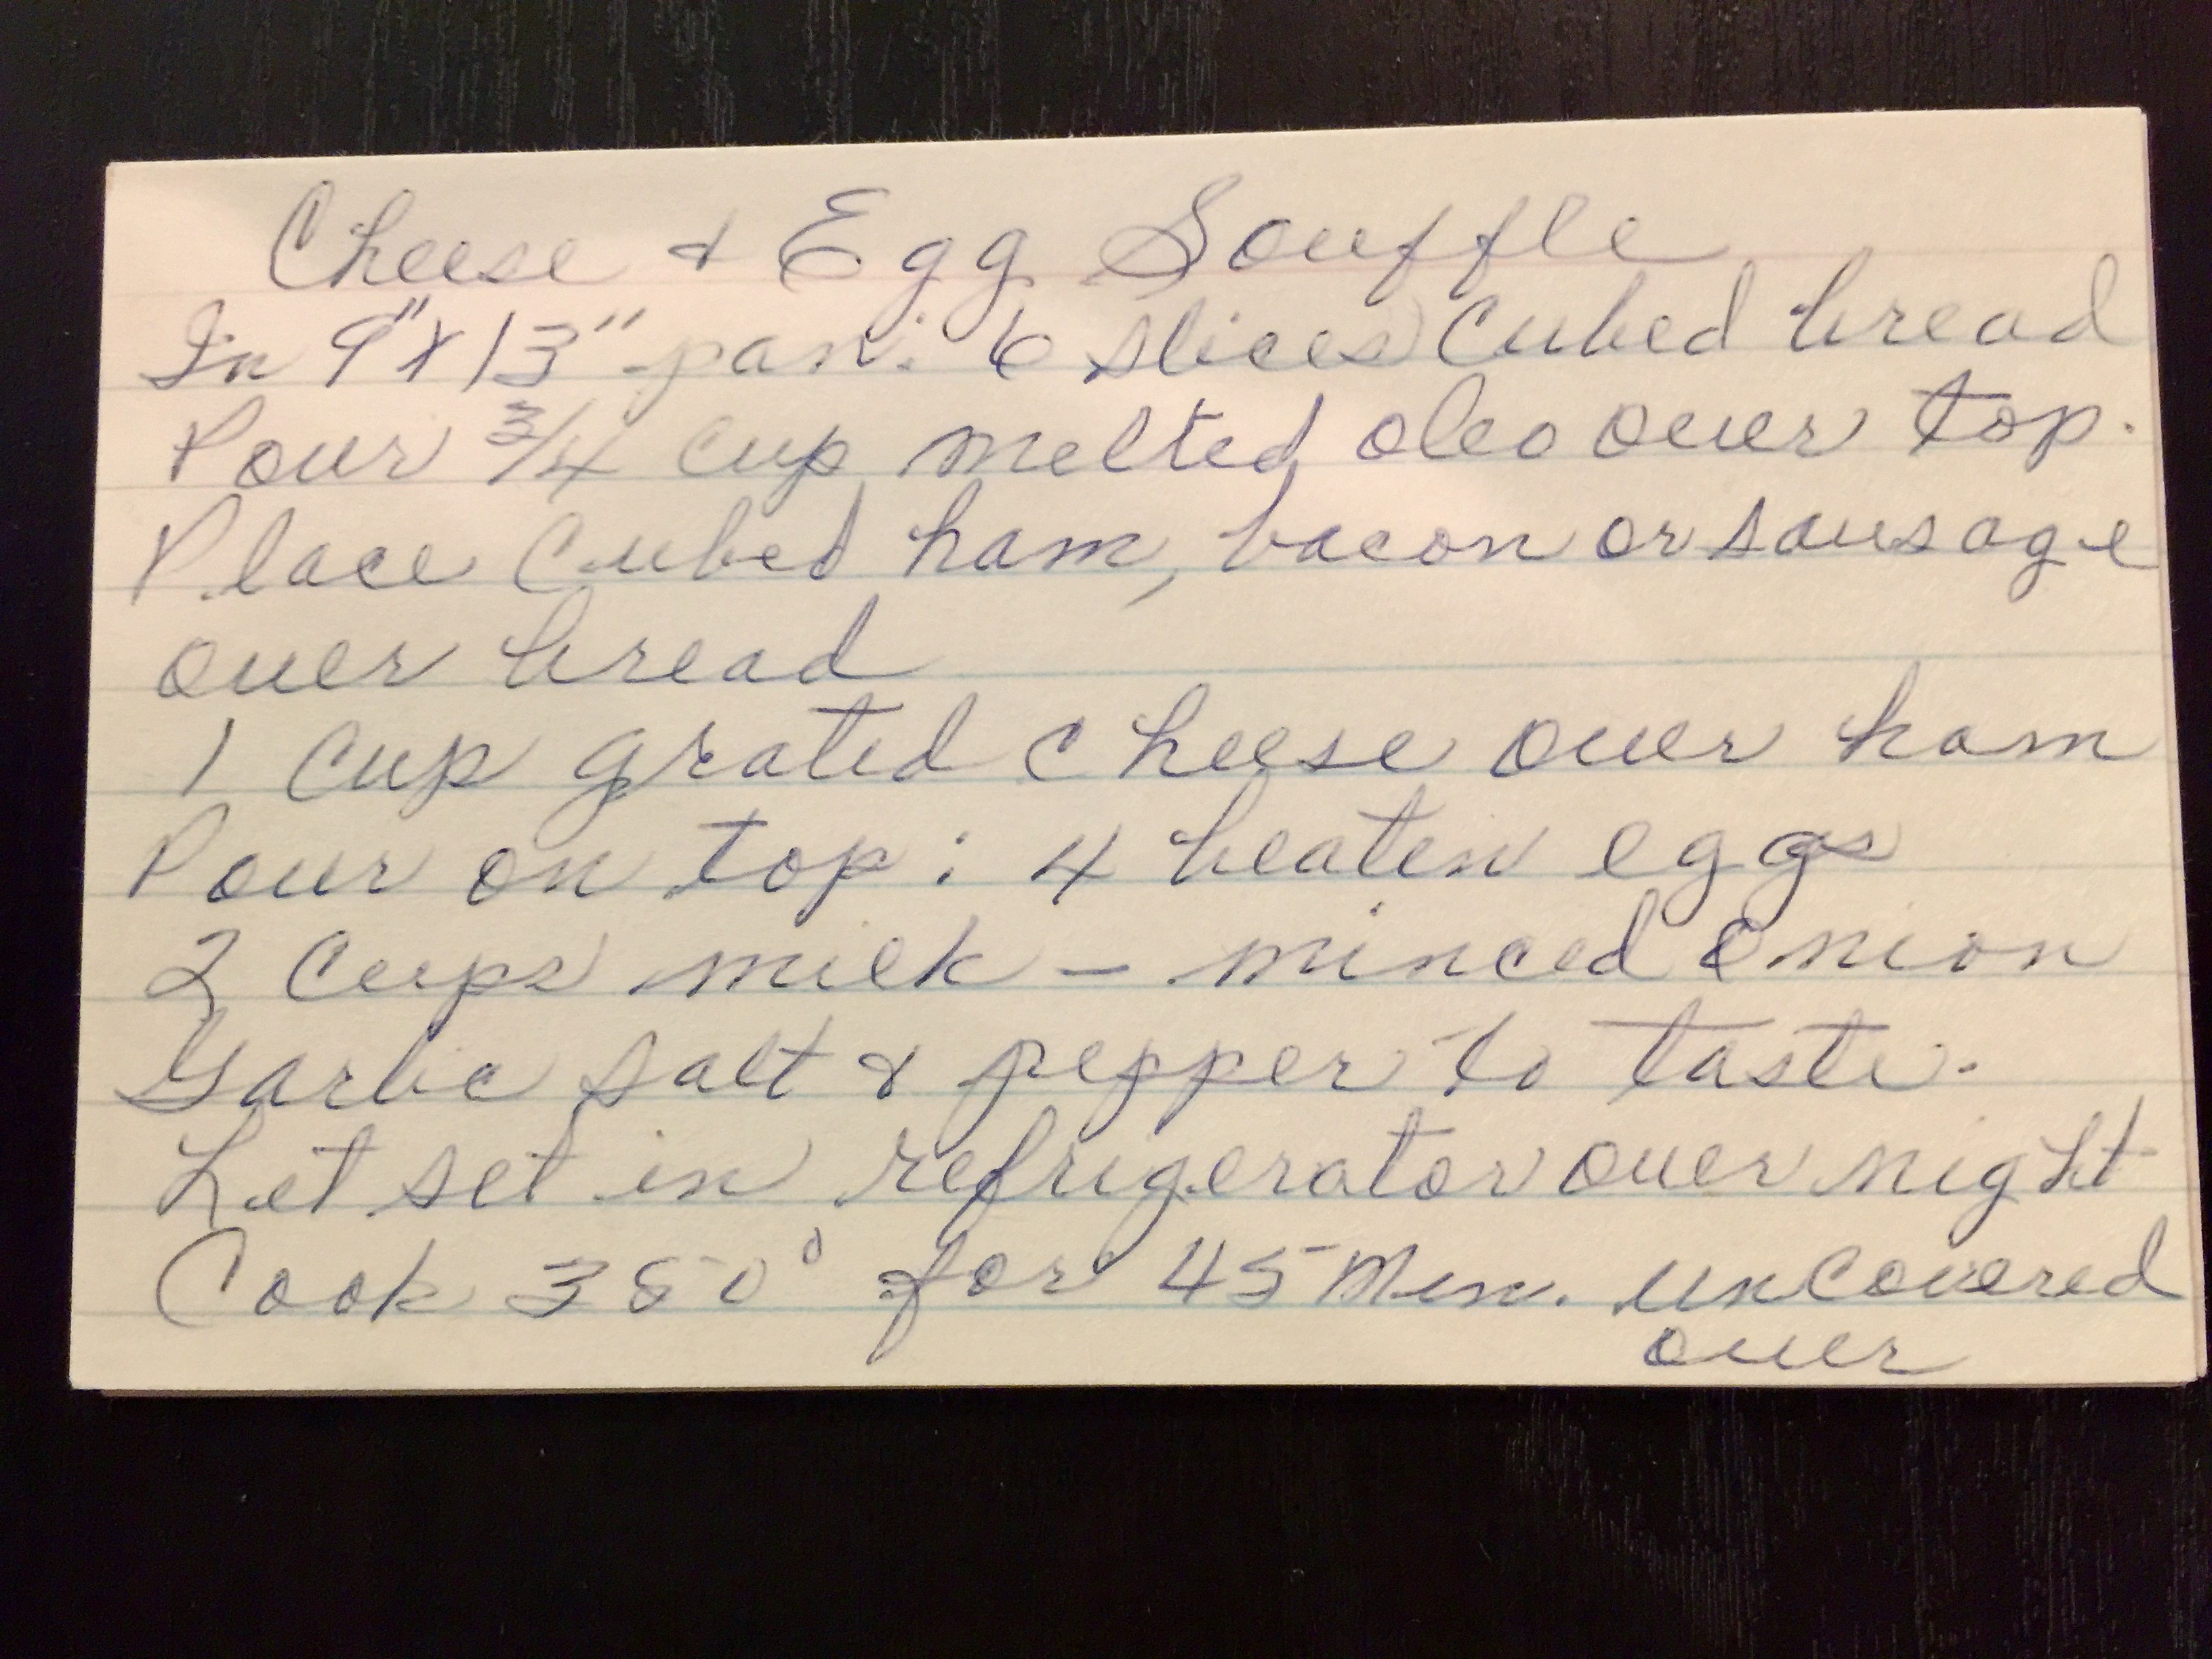 Cheese & Egg Souffle
In 9"x13" pan: 6 slices cubed bread
Pour 3/4 cup melted oleo over top.
Place cubed ham, bacon or sausage
over bread
1 cup grated cheese over ham
Pour on top: 4 beaten eggs
2 cups milk - minced onion
Garlic salt & pepper to taste.
Let set in refrigerator over night
Cook 350° for 45 Min. uncovered
over